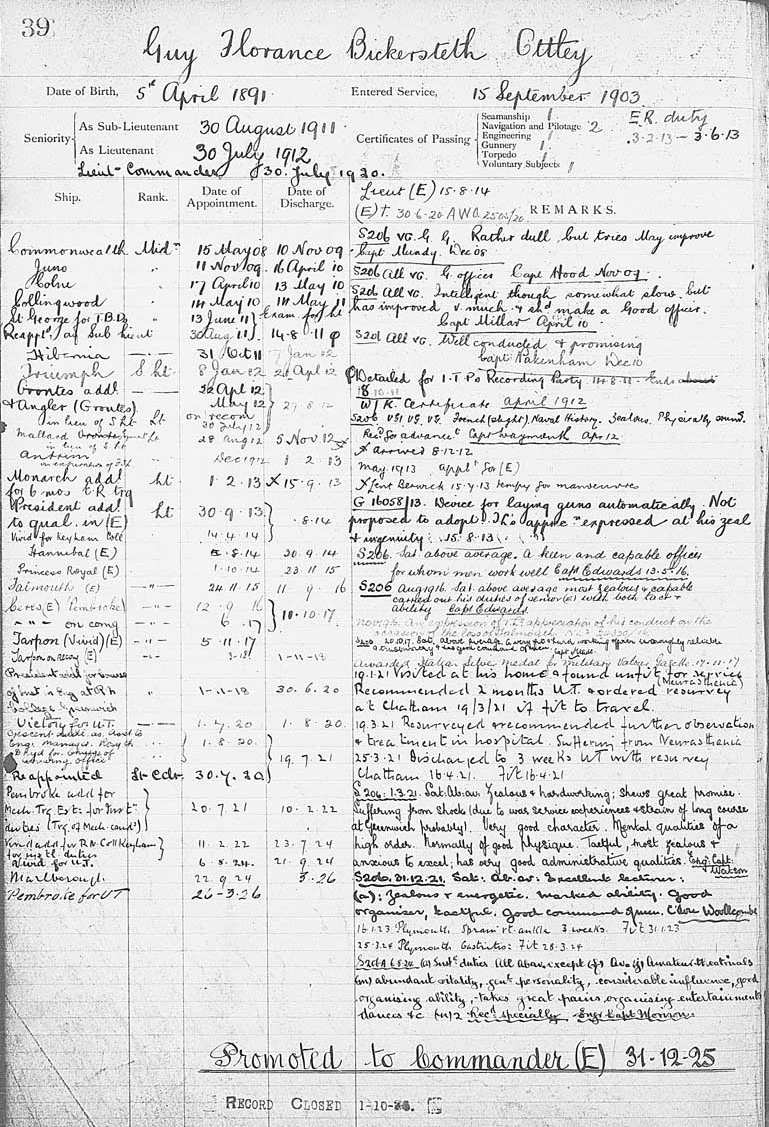 39
Guy Florance Bickersteth Ottley
Date of Birth, 5th April 1891. Entered Service, 15 September 1903
Seniority As Sub-Lieutenant 30 August 1911
As Lieutenant 30 July 1912
Lieut-Commander 30. July 1920.
Certificates of Passing
Seamanship 1
Navigation and Pilotage 2
Engineering 1
Gunnery 1
Torpedo 1
Voluntary Subjects
E.R. duty
3.2.13 — 3.6.13
Ship. Rank. Date of Appointment. Date of Discharge. REMARKS.
Lieut (E) 15.8.14
(E) t. 30.6.20 AWO
Commonwealth Midn 15 May 08 10 Nov 09
Juno " 11 Nov 09 16 April 10
Colne " 17 April 10 13 May 10
Collingwood " 14 May 10 14 May 11
St George for T.B.Ds " 13 June 11 Exam for Lt
Reappt. as Sub Lieut 30 Aug 11 14.8.11 φ
Hibernia — 31 Oct 11 7 Jan 12
Triumph S Lt. 8 Jan 12 21 Apl 12
Orontes addl — 22 Apl 12
& Angler (Orontes) May 12 27.8.12
in lieu of S Lt Lt on recom 30 July 12
Mallard 28 Aug 12 5 Nov 12
in lieu of S Lt
Antrim Dec 1912 1 2 .13
Monarch addl Lt 1.2.13 X 15.9.13
for 6 mos E.R trg
President addl Lt 30.9.13 .8.14
to qual. in (E)
Vivid for Keyham Coll 14.4.14
Hannibal (E) 8.14 30.9.14
Princess Royal (E) 1.10.14 23.11.15
Falmouth (E) 24.11.15 11.9.16
Ceres (E) Pembroke — " — 12.9.16 10.10.17
— " — on comg — " — 6.17
Tarpon (Vivid) (E) — " — 5.11.17
Tarpon on recom (E) 3.18 1-11-18
President addl for course " 1-11-18 30.6.20
of inst in Eng at RN
College Greenwich
Victory for U.T. — " — 1.7.20 1.8.20.
Crescent addl as Asst to " 1.8.20.
Engr Manager Rosyth
Dkyd for charge of " 19.7.21
Reappointed Lt Cdr. 30.7.20
Pembroke add for
Mech. Trg Est: for Inst " 20.7.21 10.2.22
duties (Trg. of Mech. cand.)
Vivid add for R.N. Coll Keyham 11.2.22 23.7.24
for instl duties
Vivid for U.T. 6.8.24. 21.9.24
Marlborough 22.9.24 3.26
Pembroke for UT 26-3-26
S206 VG. G G. Rather dull, but tries May improve
Capt Mundy. Dec 08
S206 All VG. G officer Capt Hood Nov 09.
S206 All VG. Intelligent though somewhat slow. but
has improved v much & shd make a Good officer.
Capt Millar April 10
S206 All VG. Well conducted & promising
Capt Pakenham Dec 10
φ Detailed for I.T Ps Recording Party. 14.8.11. Ends about
18.10.11
W/K Certificate April 1912
S206 VG1 VG VG. French (slight), Naval History. Zealous. Physically sound.
Recd for advancet Capt Waymouth Apr 12
X arrived 8.12.12
May 1913 applt for (E)
X Lent Berwick 15.7.13 tempy for manoeuvres
G 16058/13. Device for laying guns automatically. Not
proposed to adopt. T.L's apprecn expressed at his zeal
& ingenuity. 15.8.13
S206. Sat above average. A keen and capable officer
for whom men work well Capt Edwards 13.5.16
S206 Aug 1916. Sat above average most zealous & capable
carried out his duties of senior (E) with both tact &
ability Capt Edwards
Nov 1916. An expression of T.L's appreciation of his conduct on the
occasion of the loss of Falmouth
Awarded Italian Silver Medal for Military Valour Gazette 17.11.17
19.1.21 Visited at his home & found unfit for service
(Neurasthenia)
Recommended 2 months U.T. & ordered resurvey
at Chatham 19/3/21 if fit to travel.
19.3.21 Resurveyed & recommended further observation
& treatment in hospital. Suffering from Neurasthenia
25.3.21 Discharged to 3 weeks UT with resurvey
Chatham 16.4.21. Fit 16.4.21
S206. 1.3.21. Sat: Ab: av: Zealous & hardworking; shews great promise.
Suffering from shock (due to war service experiences & strain of long course
at Greenwich probably). Very good character. Mental qualities of a
high order. Normally of good physique. Tactful, most zealous &
anxious to excel; has very good administrative qualities. Engr Capt:
Watson
S206. 31.12.21. Sat: Ab: av: Excellent lecturer:
(a): Zealous & energetic. Marked ability. Good
organiser, tactful. Good command of men. Cdore Woollcombe
16.1.23 Plymouth Sprain rt. ankle 3 weeks. Fit 31.1.23
25.3.24 Plymouth Gastritis: Fit 28.3.24
abundant vitality, genl personality, considerable influence, good
organising ability, takes great pains organising entertainments
dances &c Recd specially Engr Capt Morison
Promoted to Commander (E) 31-12-25
RECORD CLOSED 1-10-36.